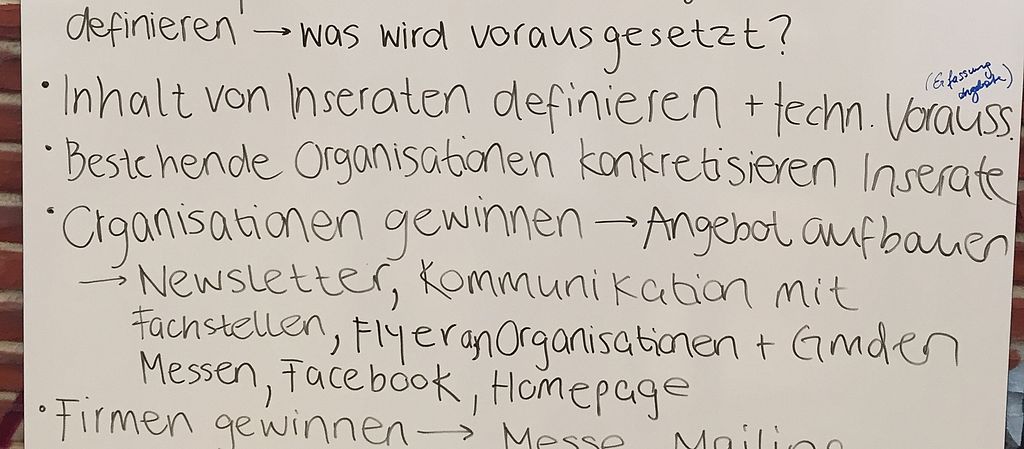 definieren → was wird vorausgesetzt?
(Erfassung
Angebote)
• Inhalt von Inseraten definieren + techn. Vorauss.
• Bestehende Organisationen konkretisieren Inserate
• Organisationen gewinnen → Angebot aufbauen
→ Newsletter, Kommunikation mit
Fachstellen, Flyer an Organisationen + Gmden
Messen, Facebook, Homepage
• Firmen gewinnen → Messe, Mailing